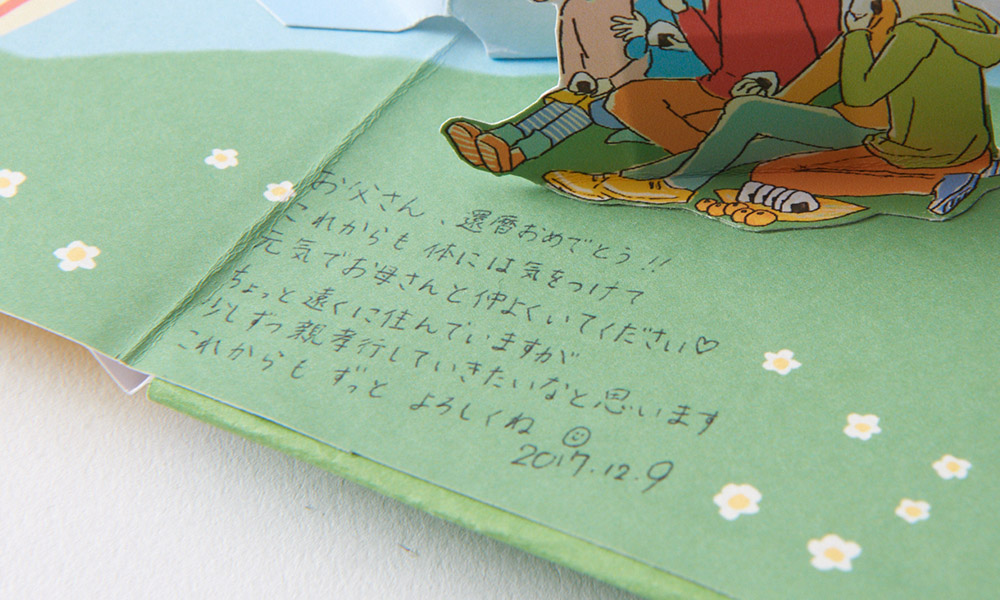 お父さん、還暦おめでとう!!
これからも体には気をつけて
元気でお母さんと仲よくいてください♡
ちょっと遠くに住んでいますが
少しずつ親孝行していきたいなと思います
これからも ずっと よろしくね☺
2017.12.9